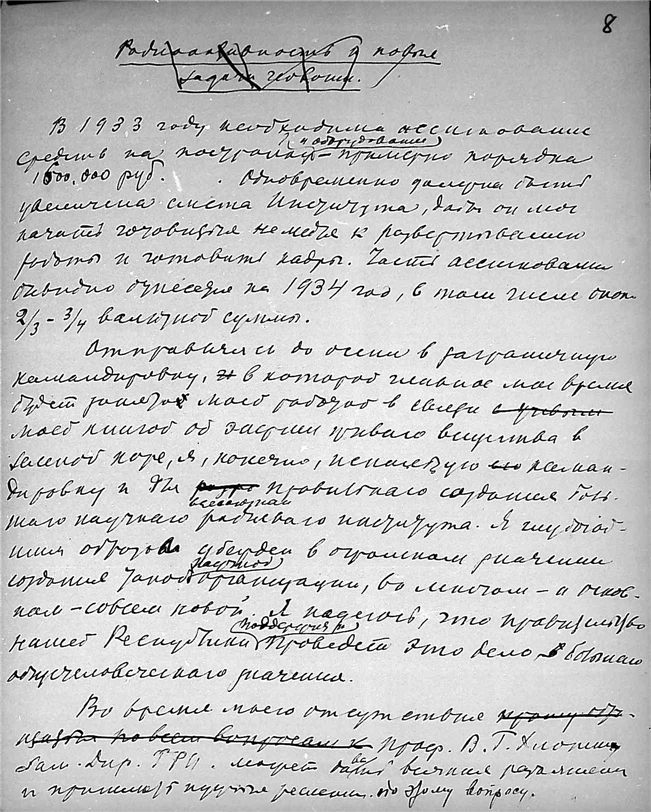 8
Радиоактивность и новые
задачи геохимии.
В 1933 году необходимо ассигнование
средств на постройку и оборудование примерно порядка
1600.000 руб. Одновременно должна быть
увеличена смета Института, дабы он мог
начать готовиться немедля к развертыванию
работы и готовить кадры. Часть ассигнования
очевидно отнесется на 1934 год, в том числе около
2/3 - 3/4 валютной суммы.
Отправляясь до осени в заграничную
командировку, в которой главное мое время
будет занято моей работой в связи с
моей книгой об энергии живого вещества в
земной коре, я, конечно, использую коман-
дировку и для правильного создания боль-
шого научного радиевого института. Я глубочай-
шим образом убежден в огромном значении
создания такой научной организации, во многом - и основ-
ном - совсем новой. Я надеюсь, что правительство
нашей Республики поддержит и проведет это дело большого
общечеловеческого значения.
Во время моего отсутствия прошу обра-
щаться по всем вопросам к проф. В. Г. Хлопину
Зам. Дир. ГРИ. может дать все всякие разъяснения
и принимать нужные решения по этому вопросу.